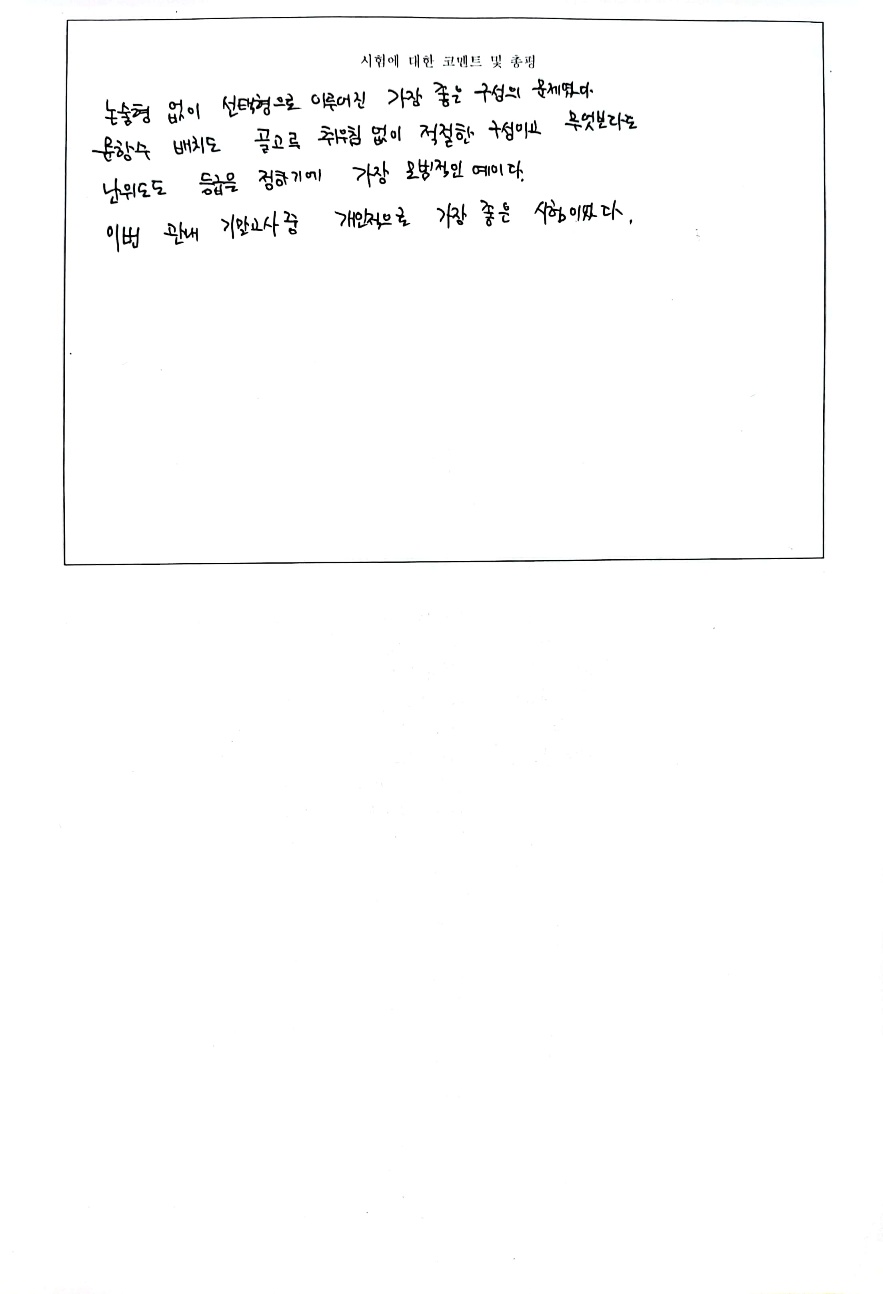 시험에 대한 코멘트 및 총평
논술형 없이 선택형으로 이루어진 가장 좋은 구성의 문제였다.
문항수 배치도 골고루 치우침 없이 적절한 구성이고 무엇보다도
난위도도 등급을 정하기에 가장 모범적인 예이다.
이번 관내 기말고사 중 개인적으로 가장 좋은 시험이었다.